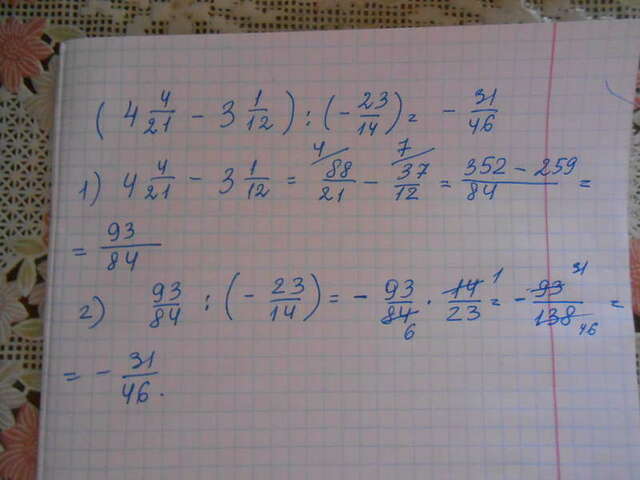 ( 4 4/21 - 3 1/12 ) : ( - 23/14 ) = - 31/46
1) 4 4/21 - 3 1/12 = 4/ 88/21 - 7/ 37/12 = 352 - 259/84 =
= 93/84
2) 93/84 : ( - 23/14 ) = - 93/84 6 · 14/23 1 = - 93/138 31 46 =
= - 31/46.